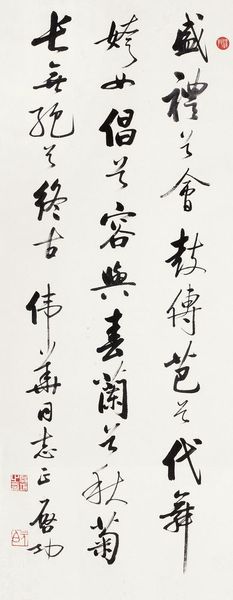 盛禮兮會鼓傳芭兮代舞
姱女倡兮容與春蘭兮秋菊
長無絕兮終古 伟華同志正 啓功